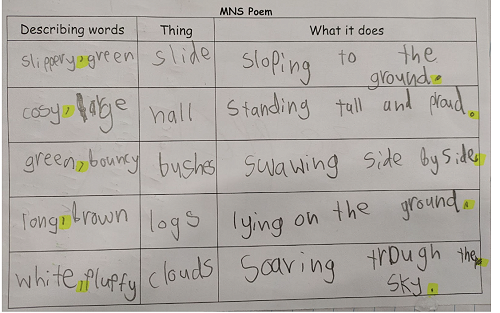 MNS Poem
Describing words Thing What it does
slippery, green slide sloping to the
ground.
cosy, large hall standing tall and proud.
green, bouncy bushes swawing side by side.
long, brown logs lying on the ground.
white, pluffy clouds Soaring trough the
sky.